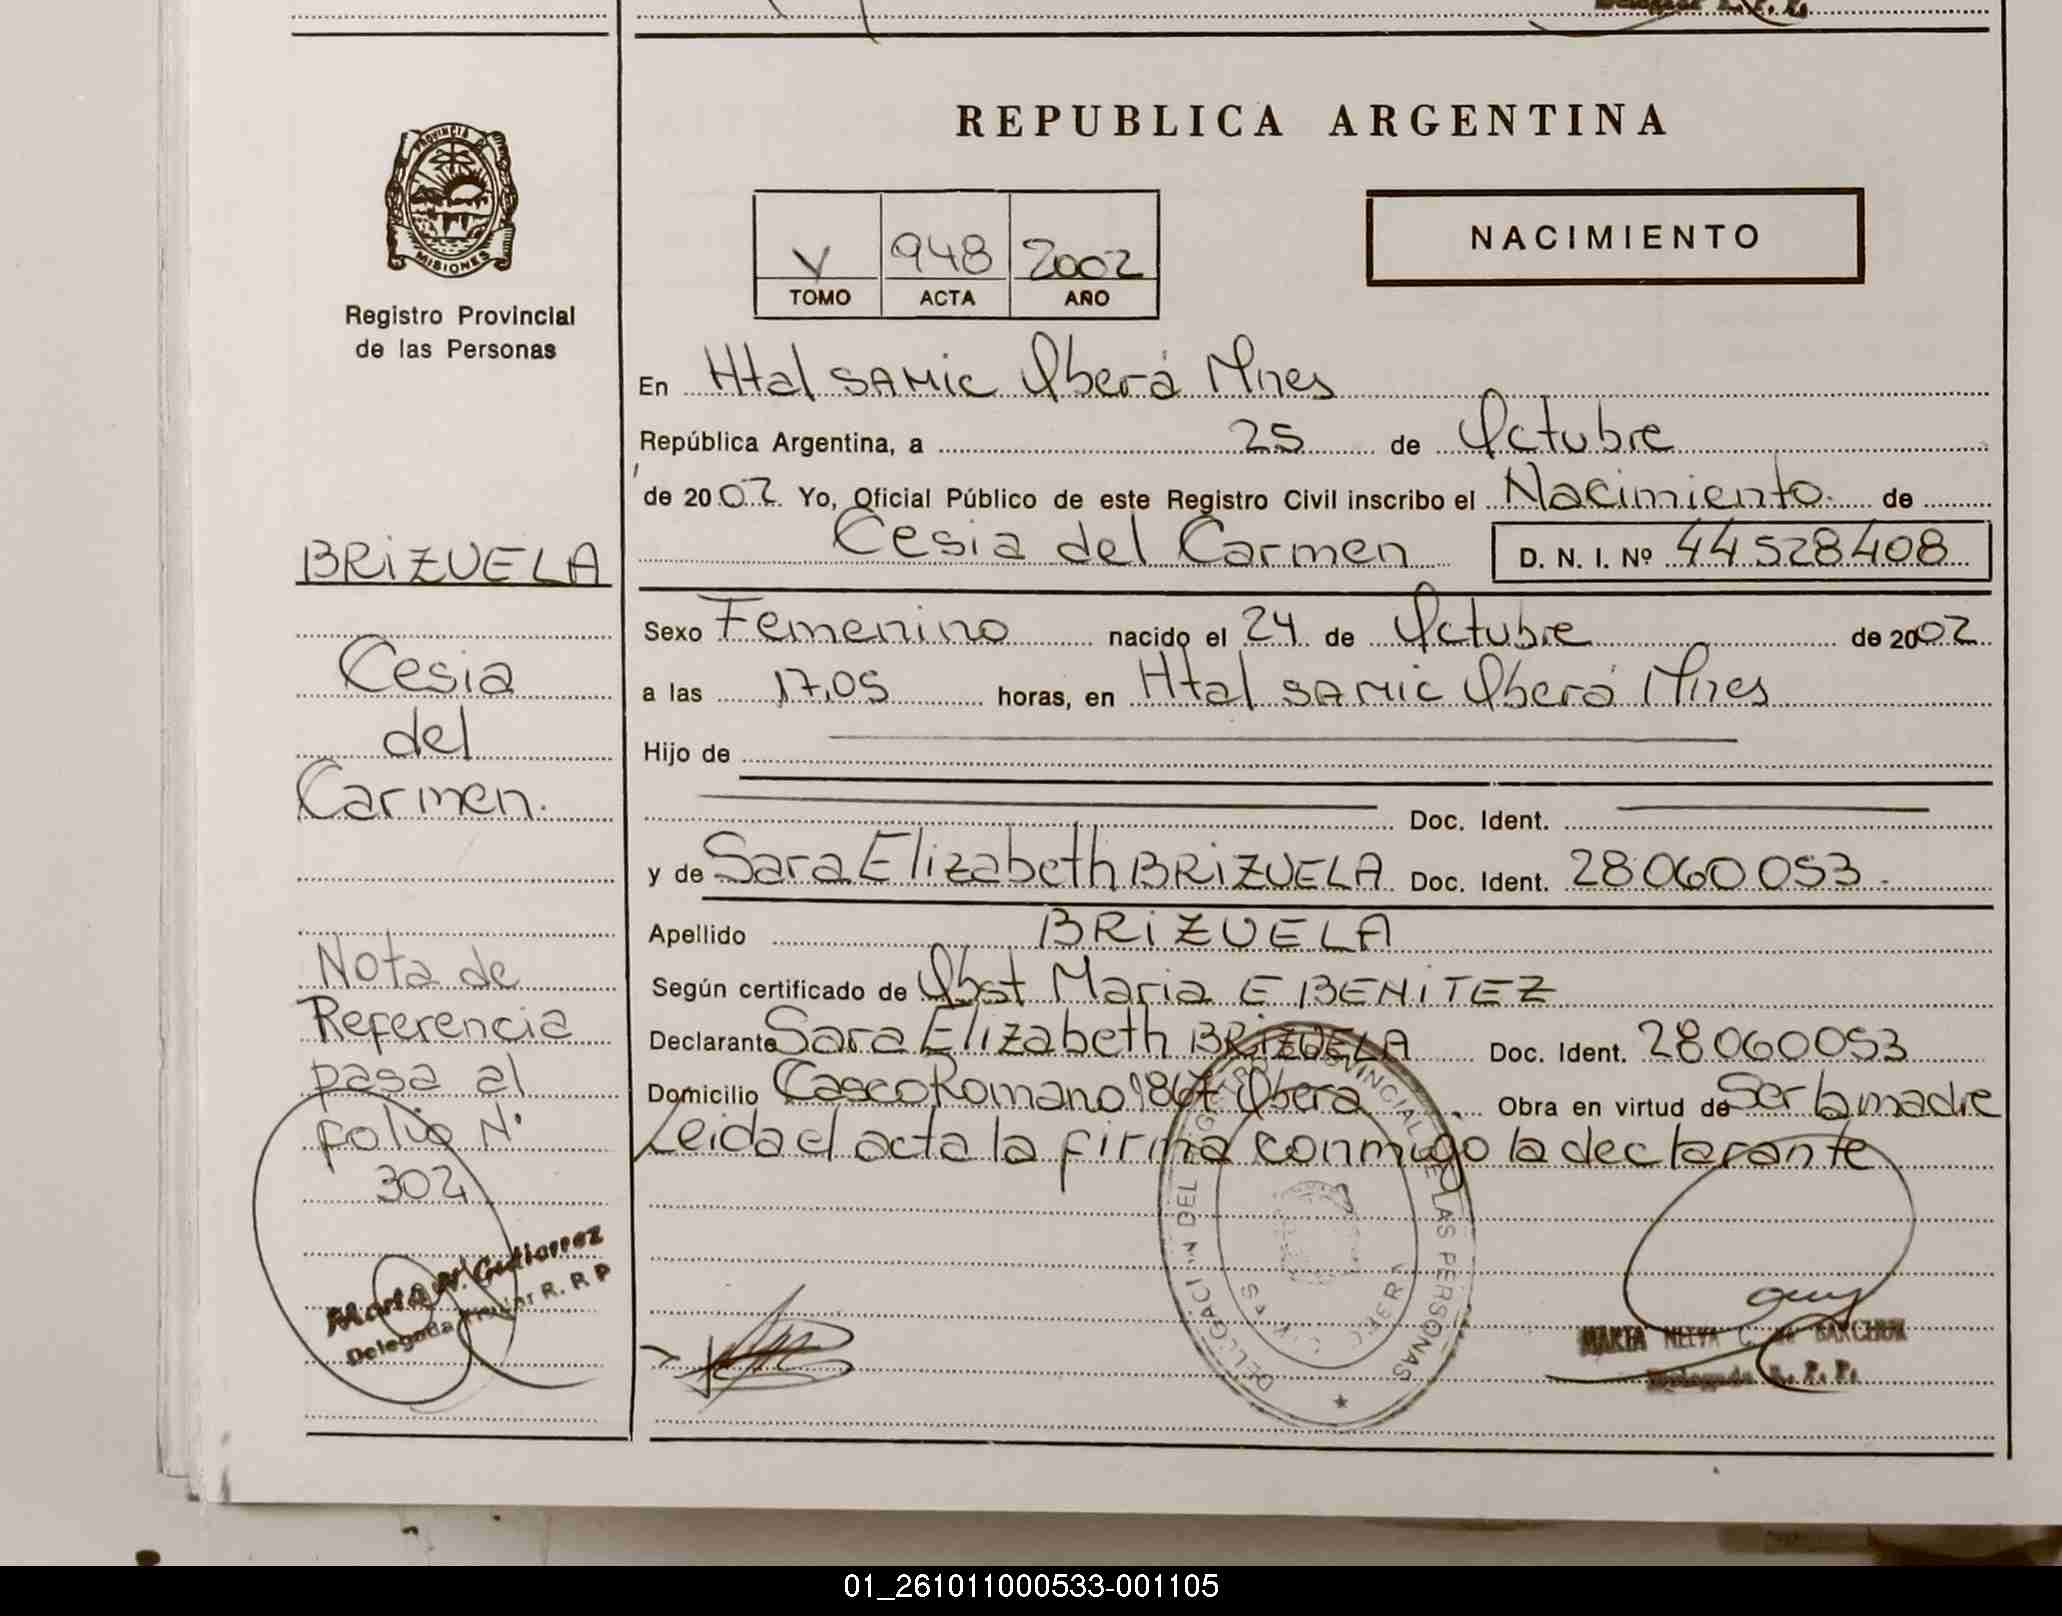 REPUBLICA ARGENTINA
PROVINCIA DE MISIONES
Registro Provincial
de las Personas
V 948 2002
TOMO ACTA AÑO
NACIMIENTO
En Htal SAMIC Oberá Mnes
República Argentina, a 25 de Octubre
de 2002 Yo, Oficial Público de este Registro Civil inscribo el Nacimiento de
Cesia del Carmen D. N. I. Nº 44.528.408
Sexo Femenino nacido el 24 de Octubre de 2002
a las 17,05 horas, en Htal SAMIC Oberá Mnes
Hijo de
Doc. Ident.
y de Sara Elizabeth BRIZUELA Doc. Ident. 28.060.053.
Apellido BRIZUELA
Según certificado de Obst Maria E BENITEZ
Declarante Sara Elizabeth BRIZUELA Doc. Ident. 28060053
Domicilio Casco Romano 1867 Oberá. Obra en virtud de Ser la madre
Leida el acta la firma conmigo la declarante
BRIZUELA
Cesia
del
Carmen.
Nota de
Referencia
pasa al
folio Nº
302
Marta N. Gutierrez
Delegada Titular R. R P
PROVINCIAL DE LAS PERSONAS
MARTA NELVA C. de
Delegada R. P. P.
01_261011000533-001105